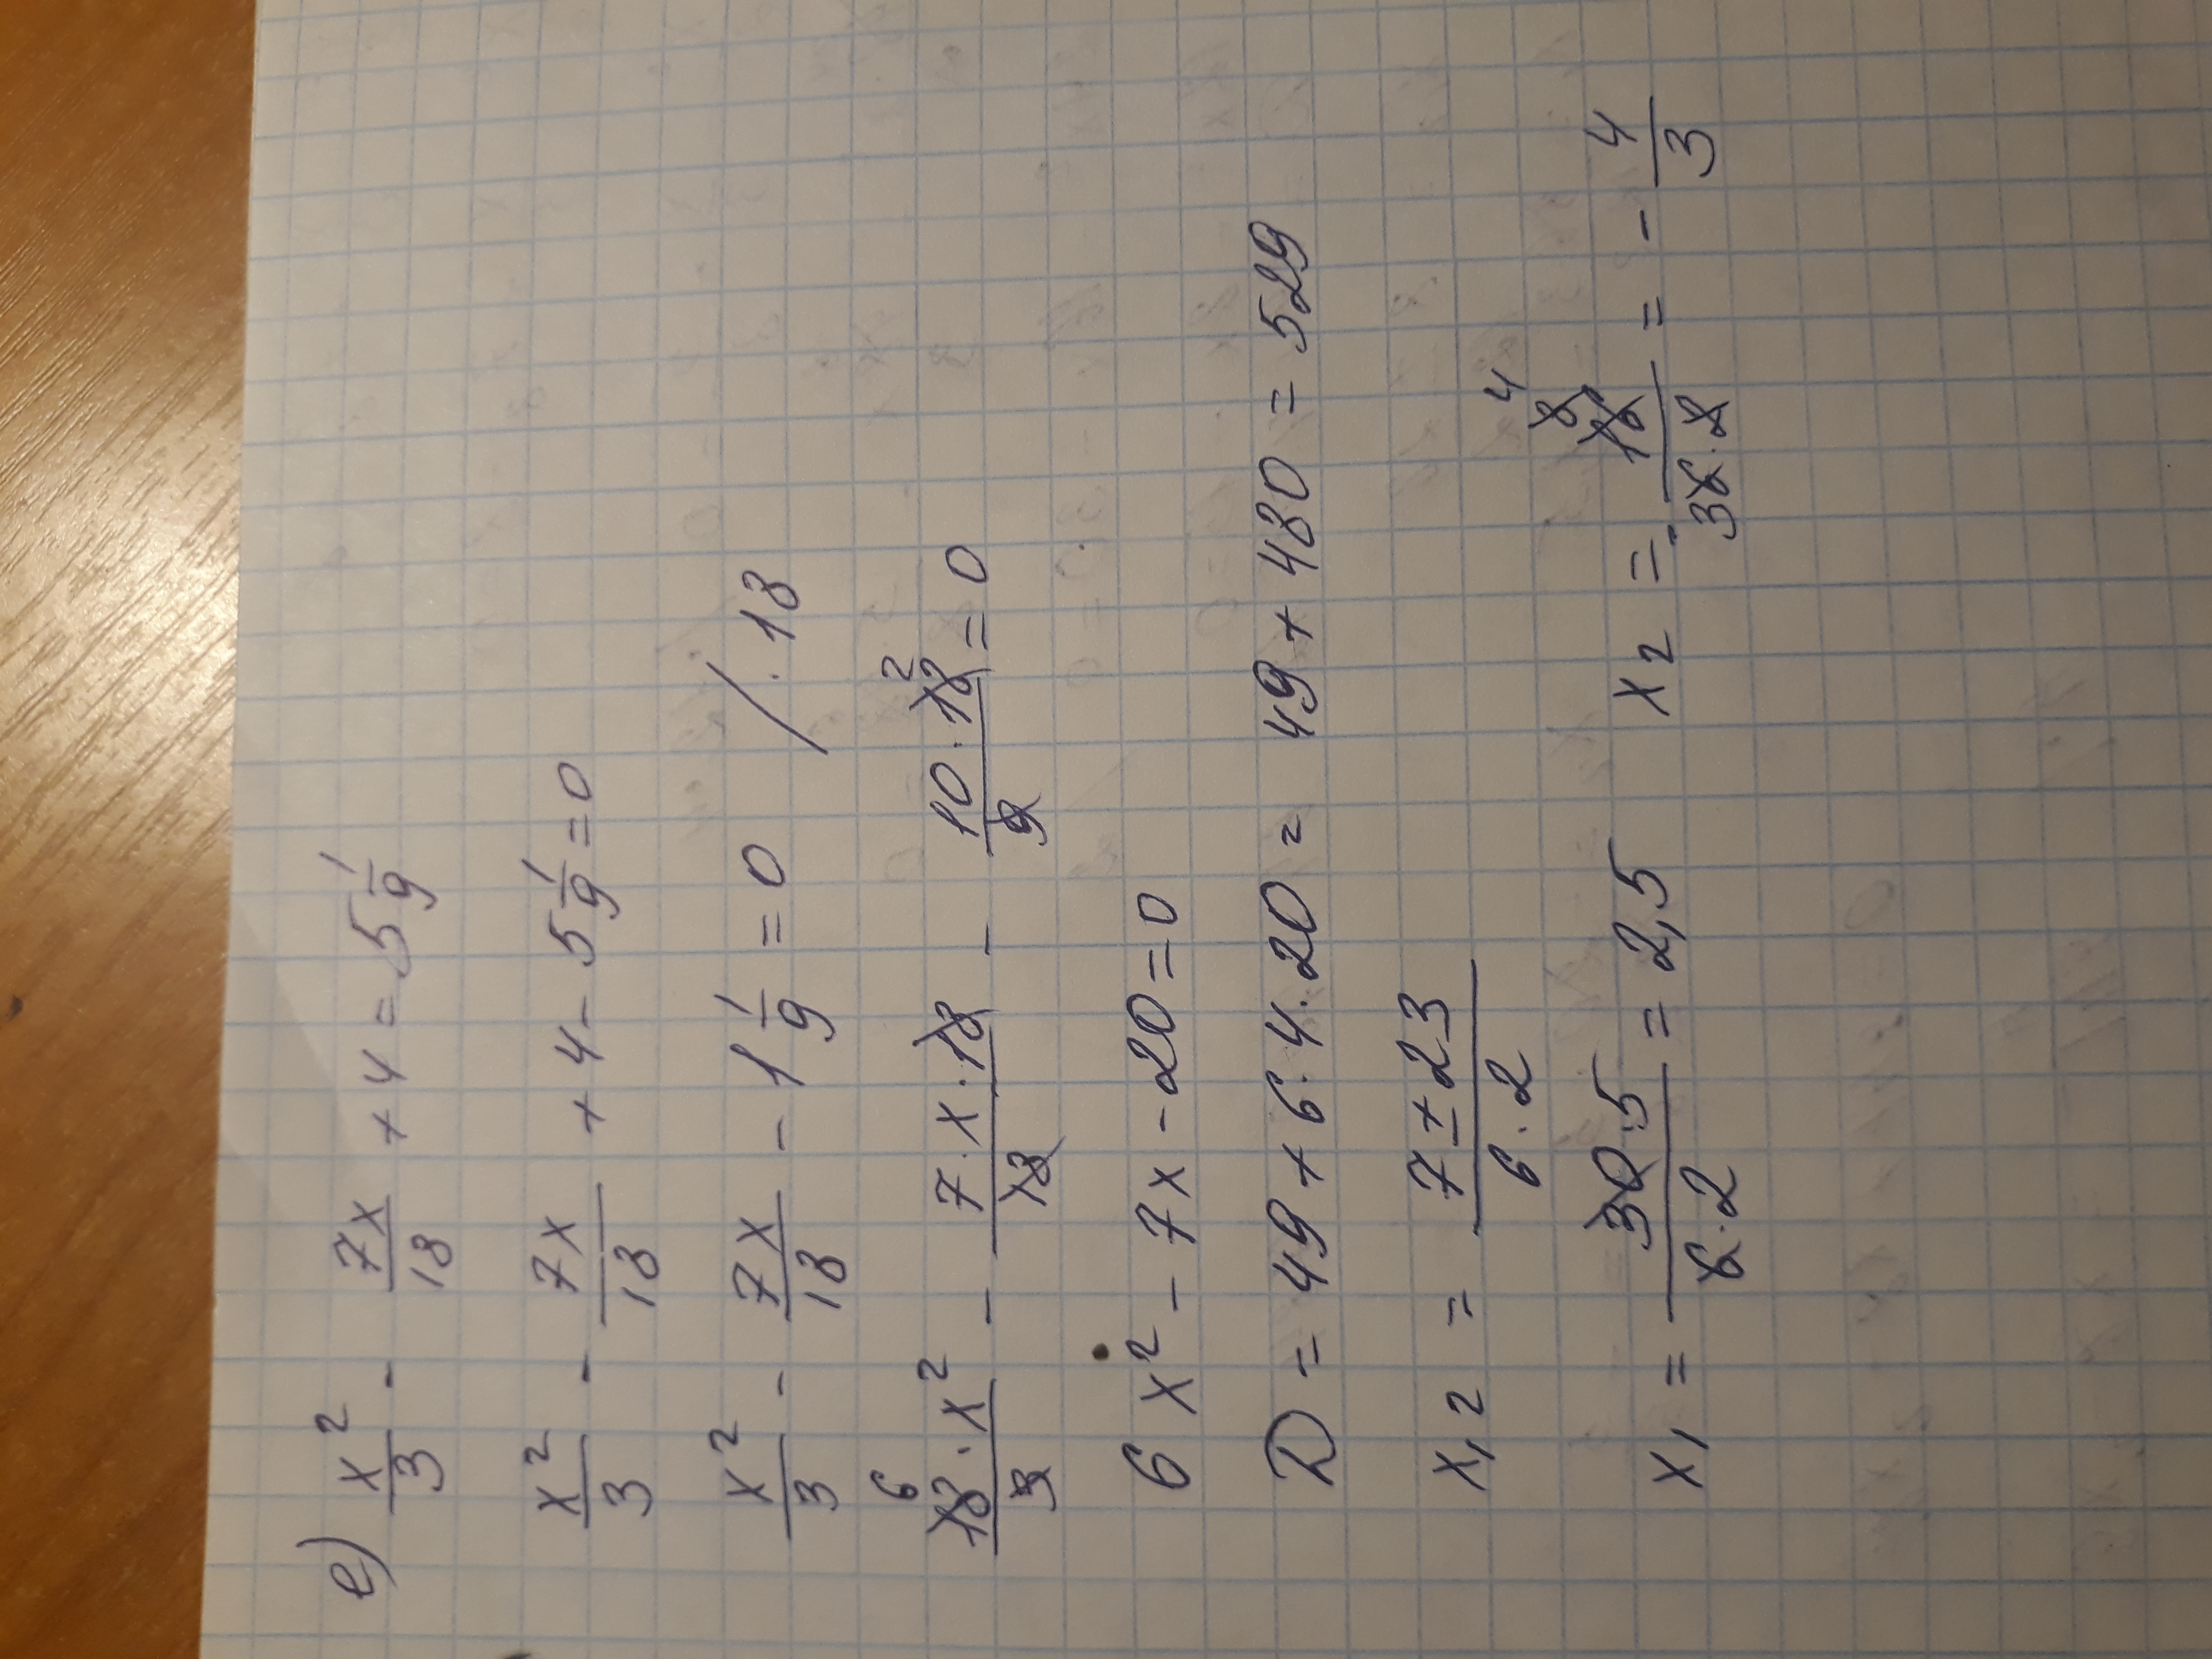 е) x²/3 - 7x/18 + 4 = 5 1/9
x²/3 - 7x/18 + 4 - 5 1/9 = 0
x²/3 - 7x/18 - 1 1/9 = 0 / · 18
6 18·x²/3 - 7·x·18/18 - 10·18 2/9 = 0
6x² - 7x - 20 = 0
D = 49 + 6·4·20 = 49 + 480 = 529
x₁,₂ = 7 ± 23/6·2
x₁ = 30 5/6·2 = 2,5 x₂ = - 16 8 4/3 6·2 = - 4/3